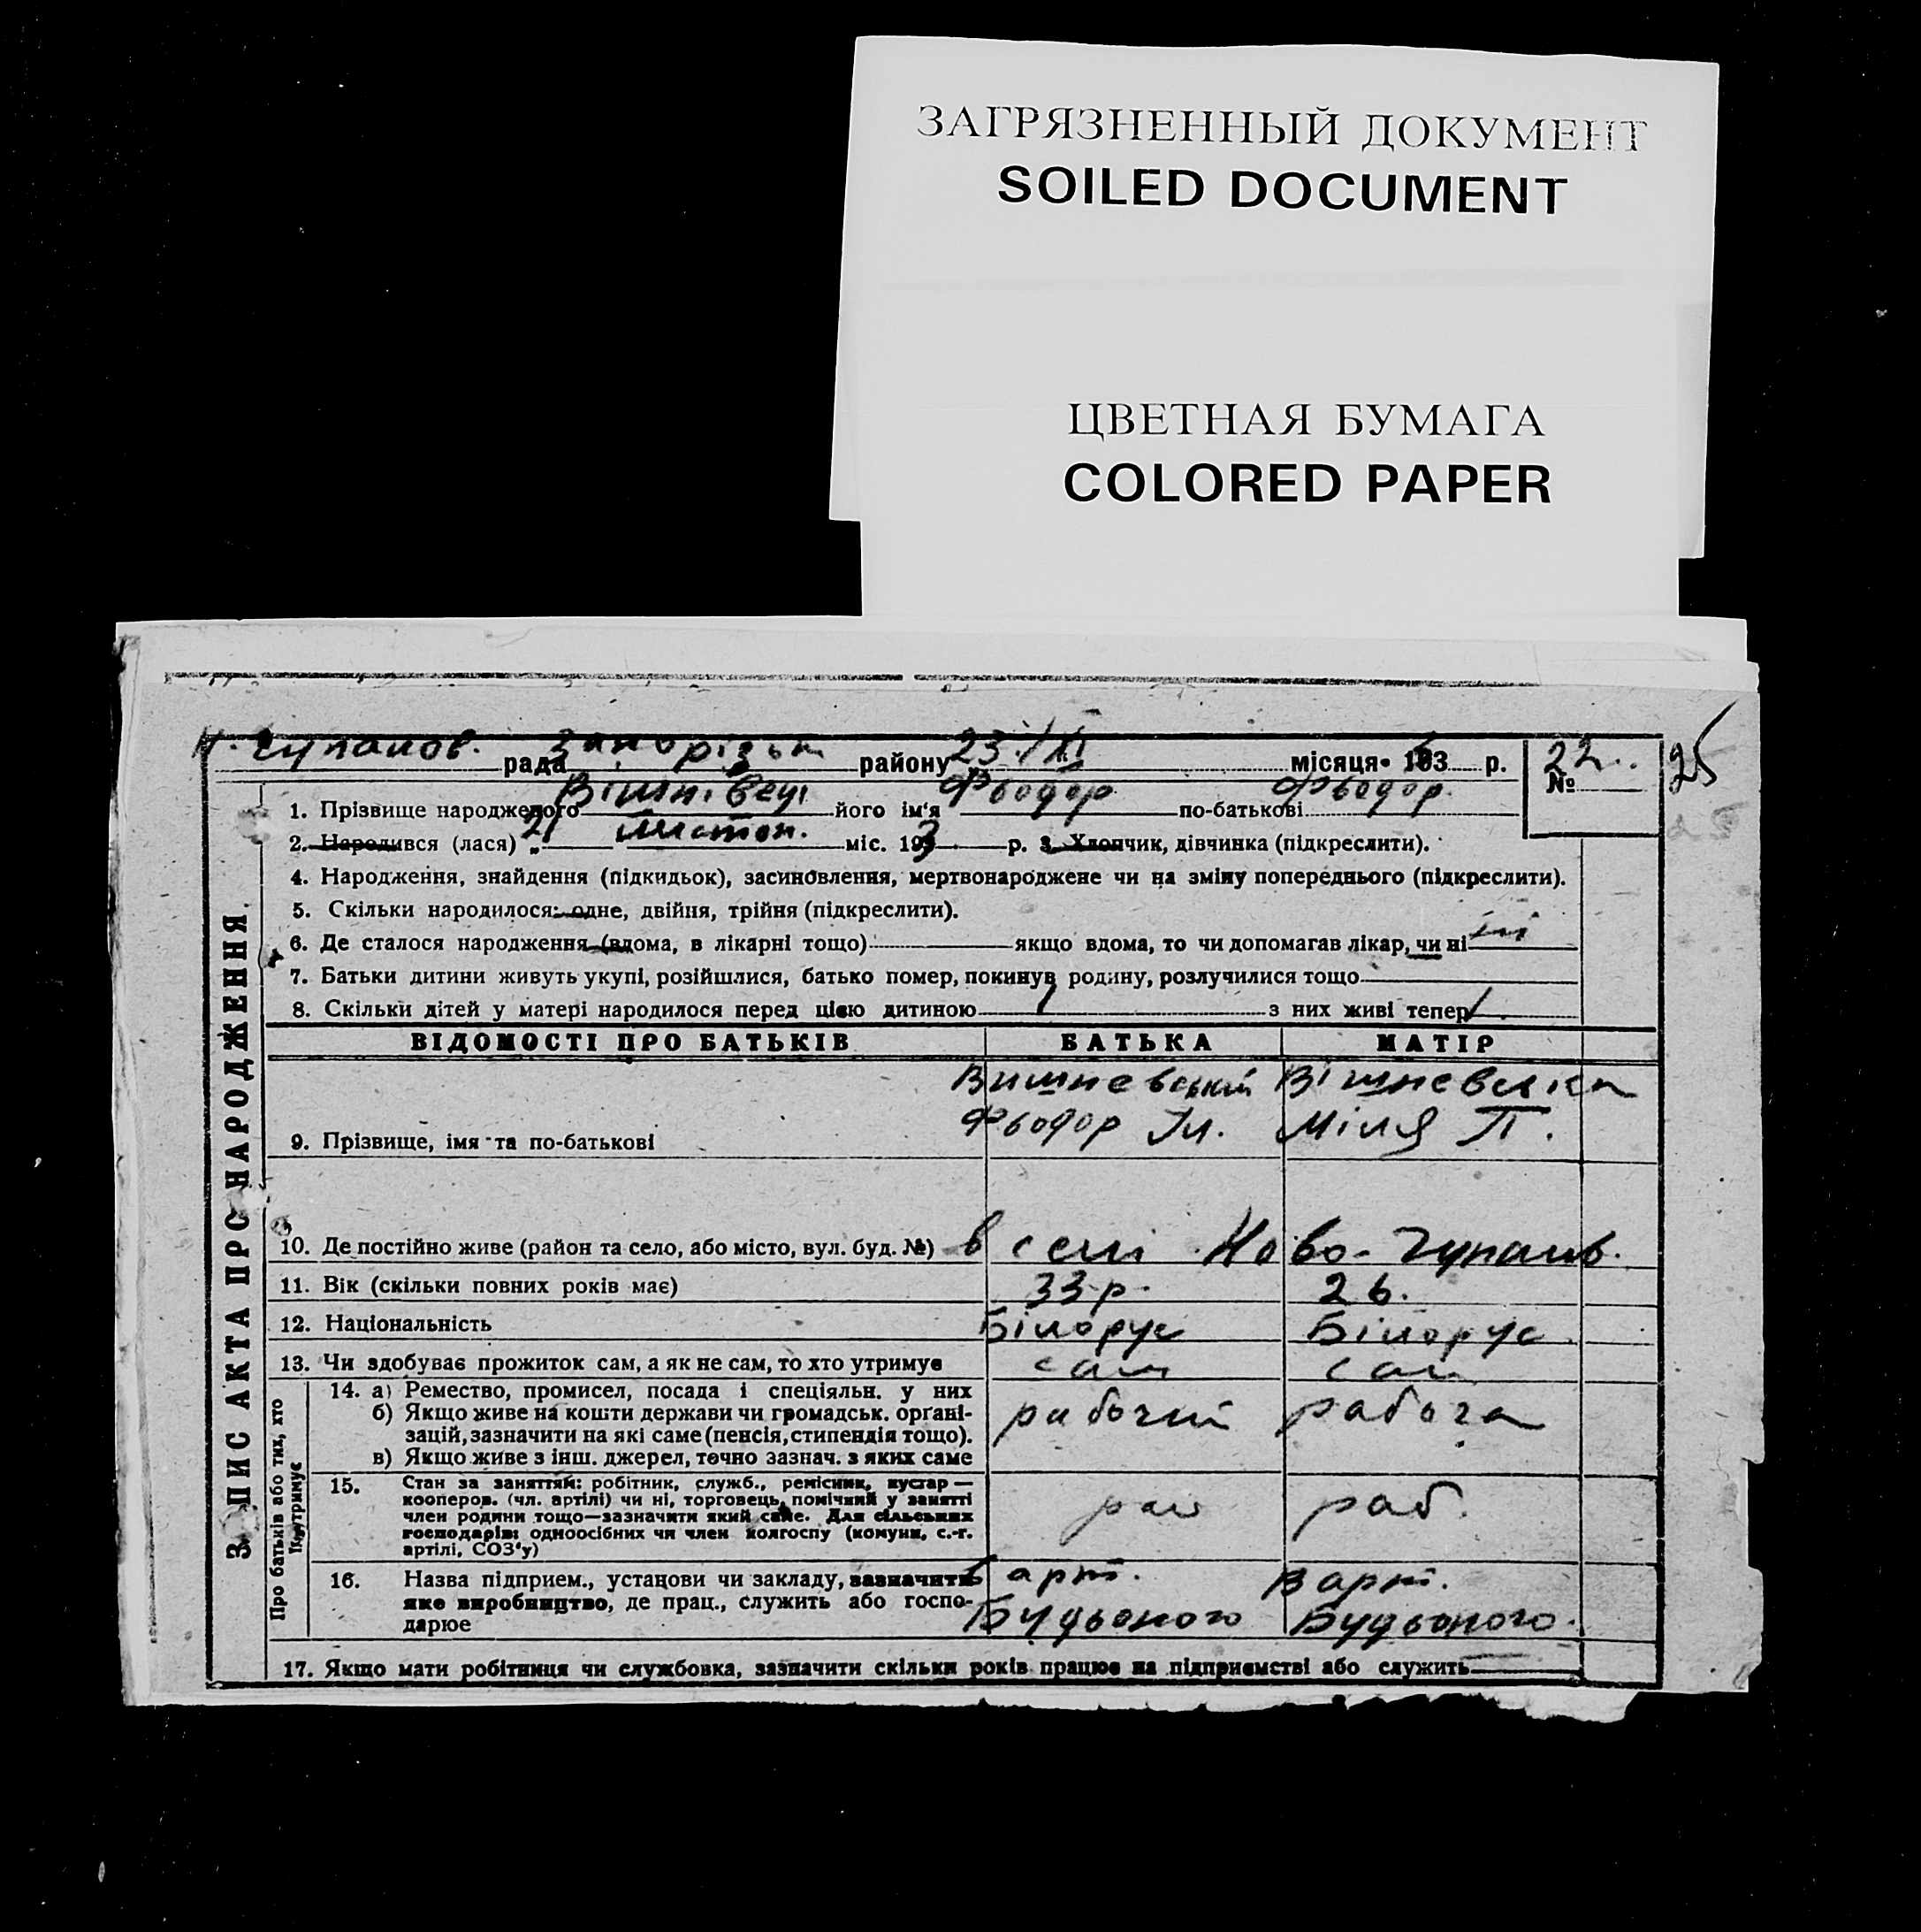 ЗАГРЯЗНЕННЫЙ ДОКУМЕНТ
SOILED DOCUMENT
ЦВЕТНАЯ БУМАГА
COLORED PAPER
рада Запорізьк району 23/XI місяця 193 р. № 22.
25
ЗАПИС АКТА ПРО НАРОДЖЕННЯ
1. Прізвище народженого його ім'я Фьодор по-батькові Фьодор.
2. Народився (лася) „21 міс. 193 р. 3. Хлопчик, дівчинка (підкреслити).
4. Народження, знайдення (підкидьок), засиновлення, мертвонароджене чи на зміну попереднього (підкреслити).
5. Скільки народилося: одне, двійня, трійня (підкреслити).
6. Де сталося народження (вдома, в лікарні тощо) якщо вдома, то чи допомагав лікар, чи ні ні
7. Батьки дитини живуть укупі, розійшлися, батько помер, покинув родину, розлучилися тощо
8. Скільки дітей у матері народилося перед цією дитиною 1 з них живі тепер 1
ВІДОМОСТІ ПРО БАТЬКІВ БАТЬКА МАТІР
Вишневський Вішневська
Фьодор Міля П.
9. Прізвище, імя та по-батькові
10. Де постійно живе (район та село, або місто, вул. буд. №) в селі Ново-
11. Вік (скільки повних років має) 33 р. 26.
12. Національність Білорус Білорус
13. Чи здобуває прожиток сам, а як не сам, то хто утримує сам сам
Про батьків або тих, хто їх утримує
14. а) Ремество, промисел, посада і спеціяльн. у них
б) Якщо живе на кошти держави чи громадськ. орґані- рабочий рабоча
зацій, зазначити на які саме (пенсія, стипендія тощо).
в) Якщо живе з інш. джерел, точно зазнач. з яких саме
15. Стан за заняттям: робітник, служб., ремісник, кустар —
кооперов. (чл. артілі) чи ні, торговець, помічний у занятті раб.
член родини тощо—зазначити який саме. Для сільських
господарів: одноосібних чи член колгоспу (комуни, с.-г.
артілі, СОЗ'у)
16. Назва підприєм., установи чи закладу, зазначити в арт. В арт.
яке виробництво, де прац., служить або госпо- Будьоного Будьоного.
дарює
17. Якщо мати робітниця чи службовка, зазначити скільки років працює на підприємстві або служить